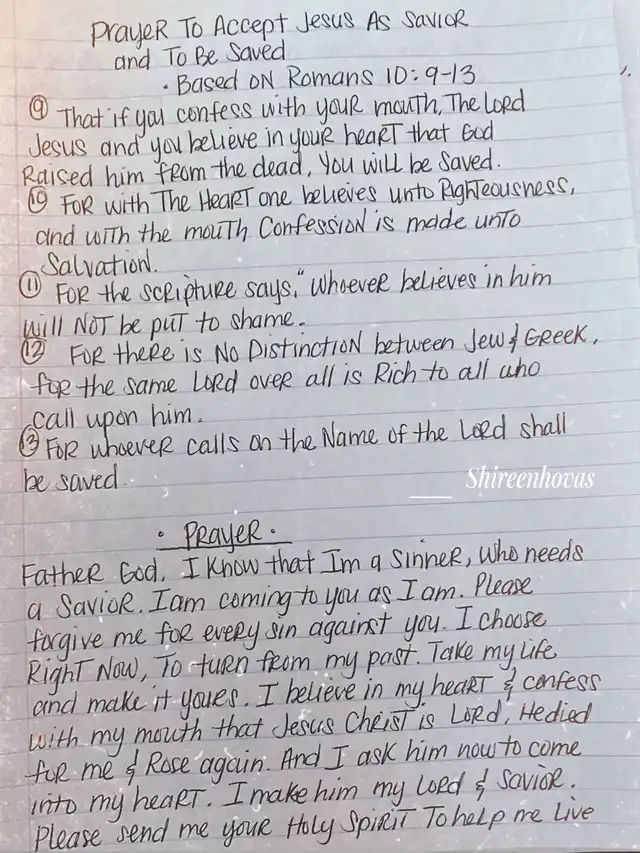 Prayer To Accept Jesus As Savior
and To Be Saved
• Based on Romans 10:9-13
⑨ That if you confess with your mouth, The Lord
Jesus and you believe in your heart that God
Raised him from the dead, you will be saved.
⑩ For with The Heart one believes unto Righteousness,
and with the mouth Confession is made unto
Salvation.
⑪ For the scripture says, "whoever believes in him
will Not be put to shame.
⑫ For there is No Distinction between Jew & Greek,
for the same Lord over all is Rich to all who
call upon him.
⑬ For whoever calls on the Name of the Lord shall
be saved.
Shireenhovas
• Prayer •
Father God, I know that Im a sinner, who needs
a Savior. I am coming to you as I am. Please
forgive me for every sin against you. I choose
Right Now, To turn from my past. Take my life
and make it yours. I believe in my heart & confess
with my mouth that Jesus Christ is Lord, He died
for me & Rose again. And I ask him now to come
into my heart. I make him my Lord & Savior.
Please send me your Holy Spirit To help me live